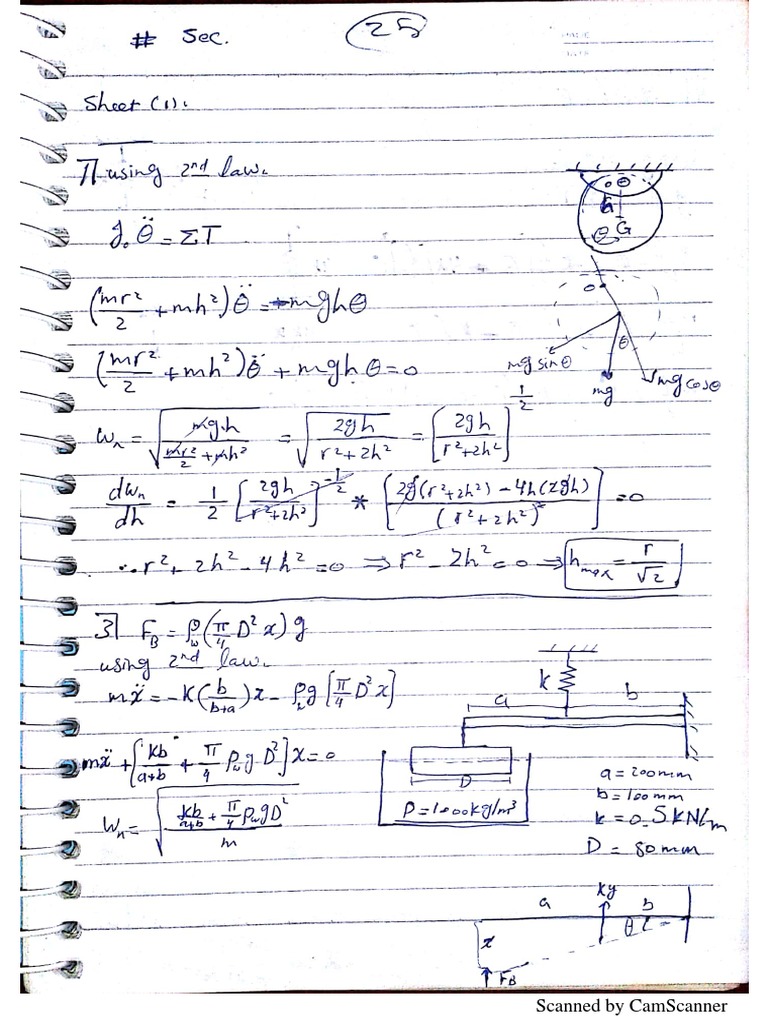 # Sec.
25
Sheet (1).
1] using 2nd law.
J₀ θ̈ = ΣT
(mr²/2 + mh²) θ̈ = -mghθ
(mr²/2 + mh²) θ̈ + mgh θ = 0
ωₙ = √(mgh / (mr²/2 + mh²)) = √(2gh / (r² + 2h²)) = [2gh / (r² + 2h²)]^(1/2)
dωₙ/dh = 1/2 [2gh / (r² + 2h²)]^(-1/2) * [(2g(r² + 2h²) - 4h(2gh)) / (r² + 2h²)²] = 0
∴ r² + 2h² - 4h² = 0 ⇒ r² - 2h² = 0 ⇒ h max = r/√2
o
h
G
θ
o
θ
mg sinθ
mg
mg cosθ
3] F_B = ρ_w (π/4 D² x) g
using 2nd law.
mẍ = -K (b/(b+a)) x - ρ_w g [π/4 D² x]
mẍ + [Kb/(a+b) + π/4 ρ_w g D²] x = 0
ωₙ = √((kb/(a+b) + π/4 ρ_w g D²) / m)
k
a
b
D
ρ = 1000 kg/m³
a = 200mm
b = 100mm
k = 0.5 KN/m
D = 80mm
a
ky
b
θ
x
F_B
Scanned by CamScanner